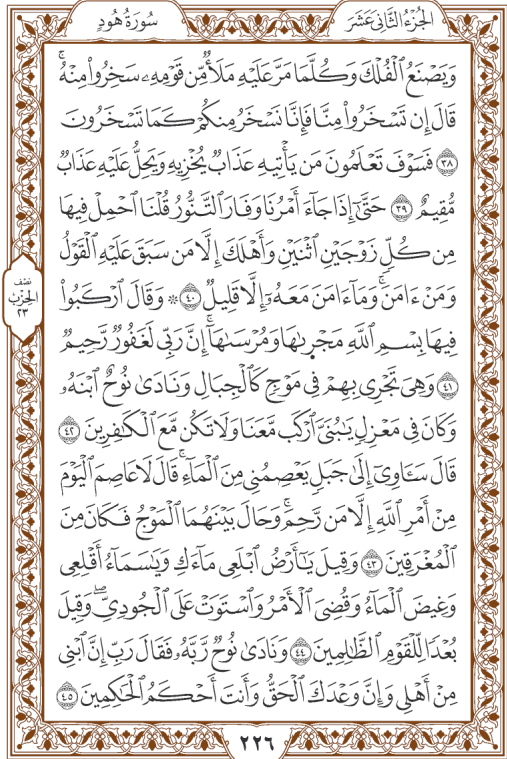 الجزء الثاني عشر
سورة هود
ويصنع الفلك وكلما مر عليه ملأ من قومه سخروا منه
قال إن تسخروا منا فإنا نسخر منكم كما تسخرون
٣٨ فسوف تعلمون من يأتيه عذاب يخزيه ويحل عليه عذاب
مقيم ٣٩ حتى إذا جاء أمرنا وفار التنور قلنا احمل فيها
من كل زوجين اثنين وأهلك إلا من سبق عليه القول
ومن ءامن وما ءامن معه إلا قليل ٤٠ ۞ وقال اركبوا
فيها بسم الله مجرىها ومرسىها إن ربي لغفور رحيم
٤١ وهي تجري بهم في موج كالجبال ونادى نوح ابنه
وكان في معزل يبني اركب معنا ولا تكن مع الكفرين ٤٢
قال سءاوي إلى جبل يعصمني من الماء قال لا عاصم اليوم
من أمر الله إلا من رحم وحال بينهما الموج فكان من
المغرقين ٤٣ وقيل يأرض ابلعي ماءك ويسماء أقلعي
وغيض الماء وقضي الأمر واستوت على الجودي وقيل
بعدا للقوم الظلمين ٤٤ ونادى نوح ربه فقال رب إن ابني
من أهلي وإن وعدك الحق وأنت أحكم الحكمين ٤٥
نصف
الحزب
٢٣
٢٢٦